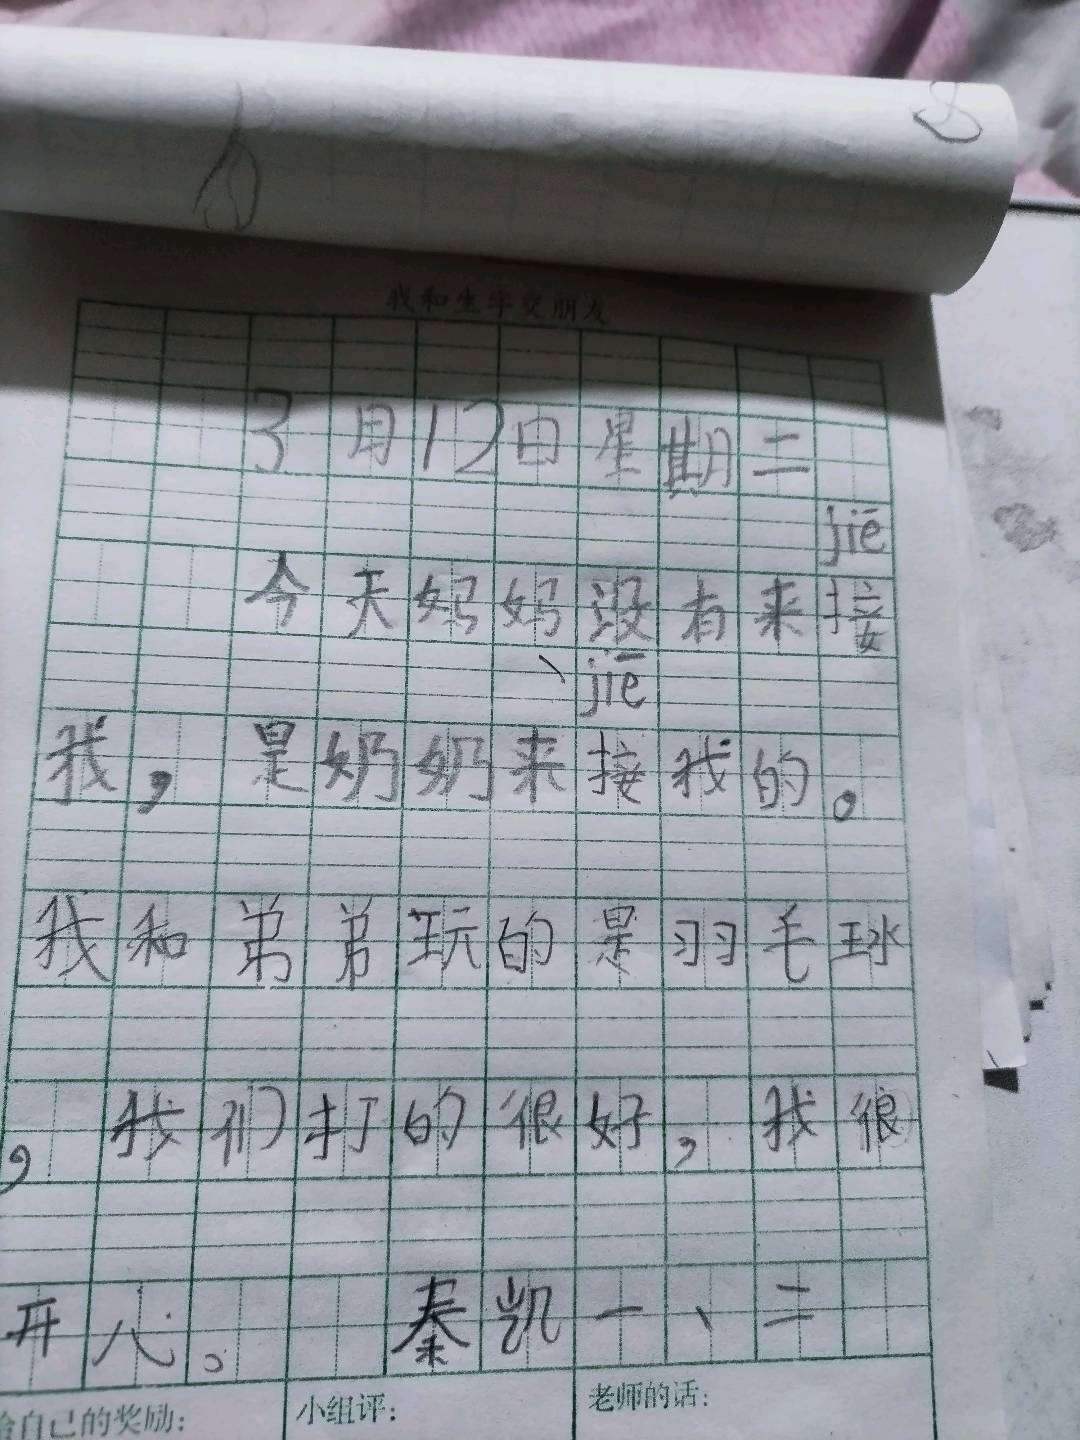 我和生字交朋友
3月12日星期二
jiē
今天妈妈没有来接
jiē
我，是奶奶来接我的。
我和弟弟玩的是羽毛球
，我们打的很好，我很
开心。 秦凯一、二
给自己的奖励： 小组评： 老师的话：